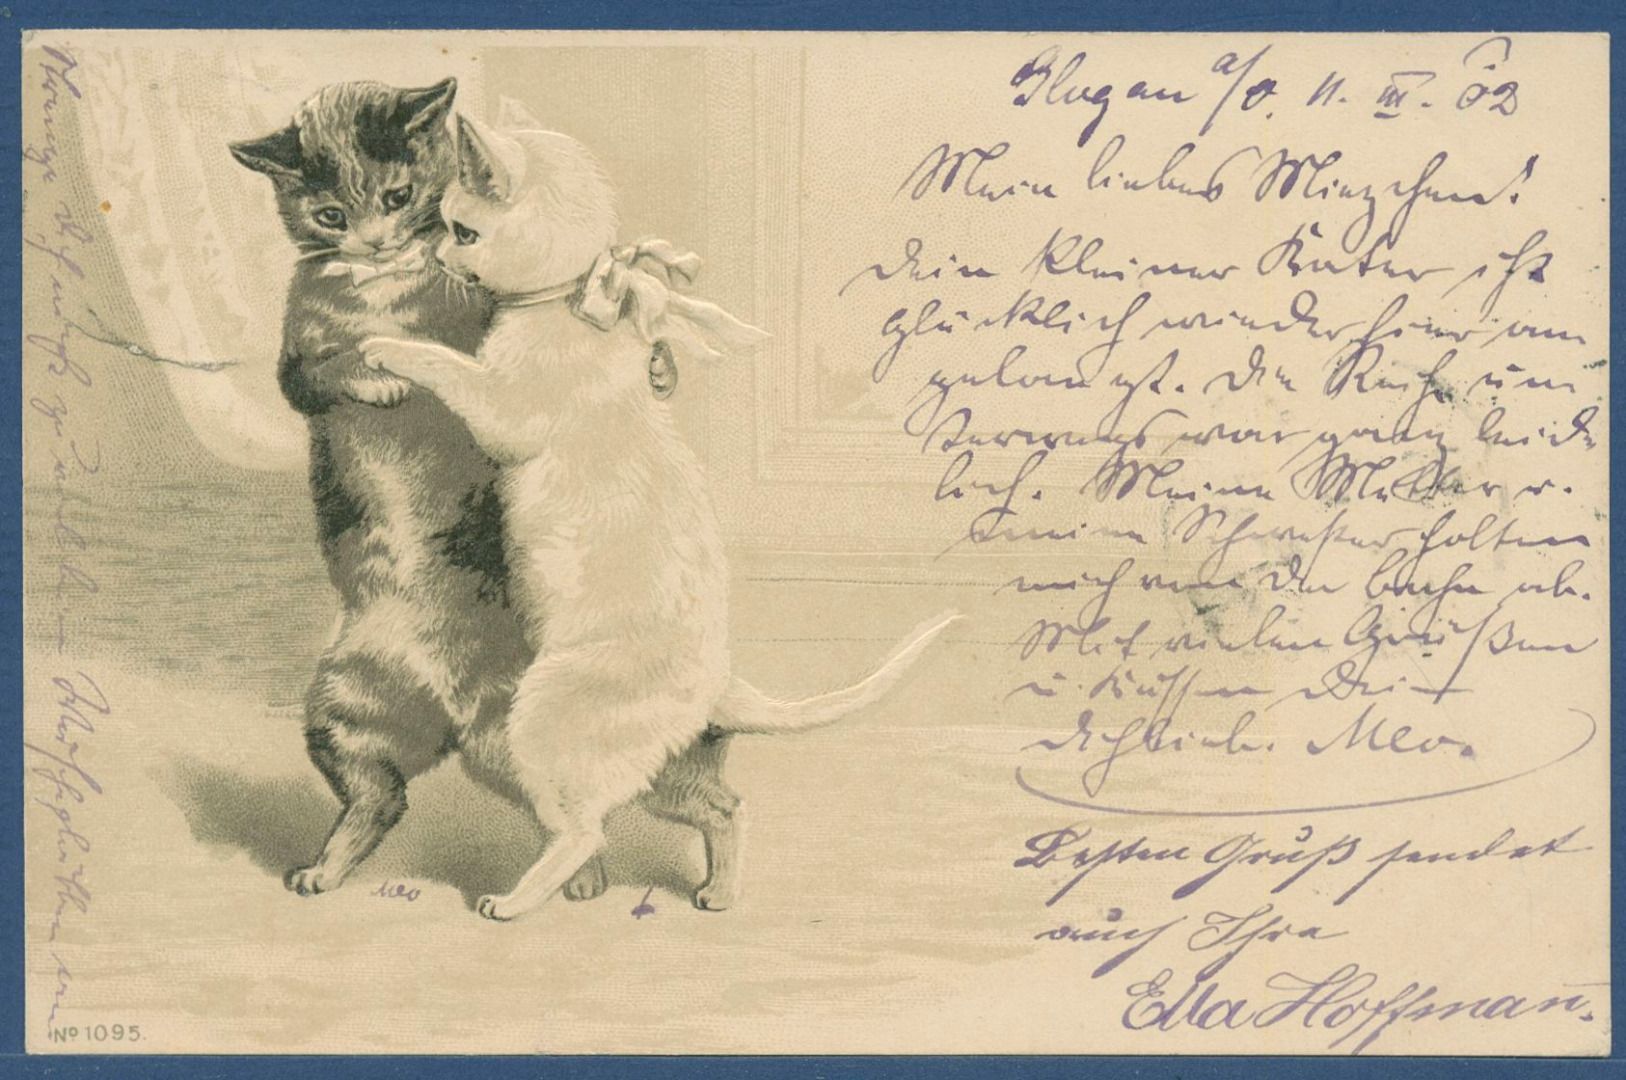 Glogau a/O. 11. III. 02
Mein liebes Miezchen!
Dein kleiner Kater ist
glücklich wieder hier an
gelangt. Die Reise un
terwegs war ganz leid
lich. Meine Mutter u.
meine Schwester holten
mich von der Bahn ab.
Mit vielen Grüßen
u. Küssen Dein
Dich lieb. Meo.
Besten Gruß sendet
auch Ihre
Ella Hoffmann.
Meo
No 1095.